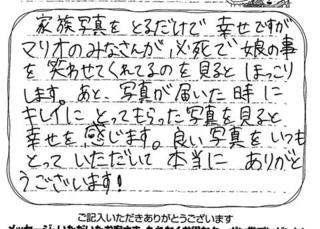 家族写真をとるだけで幸せですが
マリオのみなさんが必死で娘の事
を笑わせてくれてるのを見るとほっこり
します。あと、写真が届いた時に
キレイにとってもらった写真を見ると
幸せを感じます。良い写真をいつも
とっていただいて本当にありがと
うございます!
ご記入いただきありがとうございます